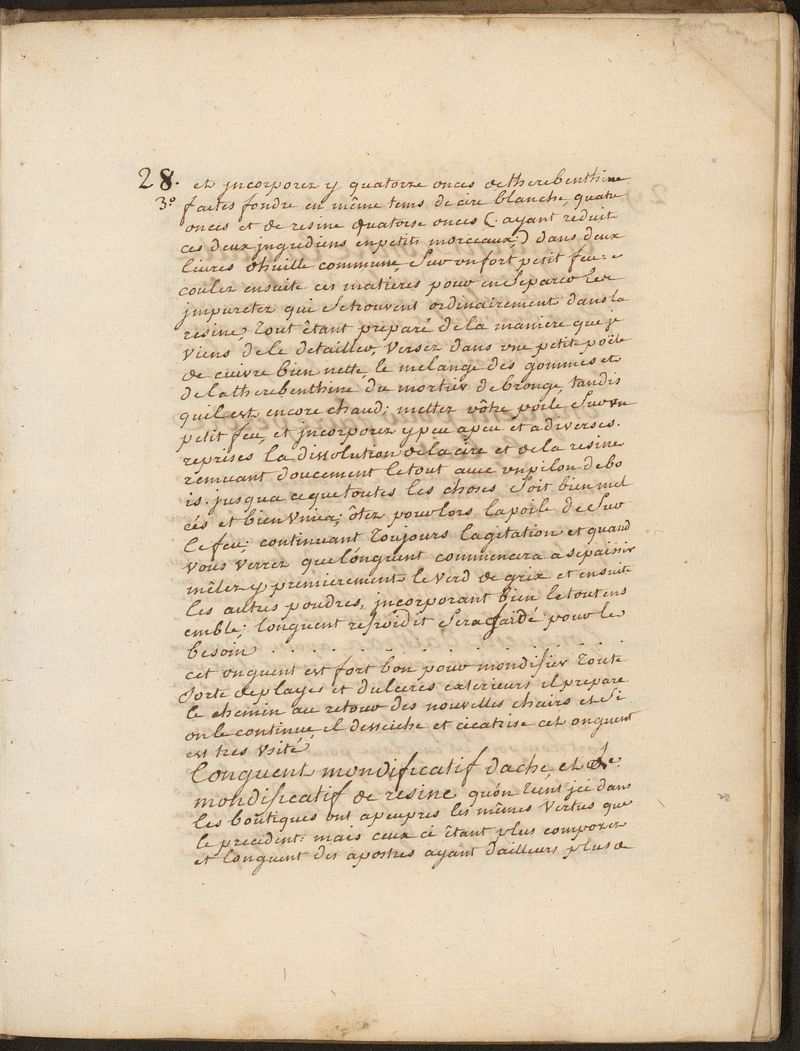 28. et jncorporez y quatorze onces de therebenthine
3º faites fondre en même tems de cire blanche, quatre
onces et de resine quatorse onces (. ayant reduit
ces deux jngrediens en petits morceaux) dans deux
livres d'huille commune, Sur un fort petit feu: e
couler ensuite ces matieres pour en Separer les
jmpuretez qui Se trouvent ordinairement dans la
resine, Tout êtant preparé de la maniere que je
viens de le detailler, versez dans une petite poële
de cuivre bien nette, le melange des gommes et
de la therebenthine du mortier de bronze, tandis
quil est encore chaud; mettez vôtre poile Sur un
petit feu, et jncorporez y peu apeu et a diverses.
reprises la dissolution de la cire et de la resine
remuant doucement le tout avec un pilon de bo
is. jusqua ce que toutes les choses Soit bien mel
cés et bien vnies; ôtez pour lors la poile de Sur
le feu; continuant Toujours lagitation et quand
vous verrez que lónguent commencera a sepaissir
mêlez y premierement le verd de gris et ensuite
les autres poudres, jncorporant bien le tout ens
emble; longuent refroidit Sera gardé pour le
besoin . . . . . . . . . . . .
cet onguent est fort bon pour mondifier Toute
Sorte de playes et dulceres exterieurs il prepare
le chemin au retour des nouvelles chairs et Si
on le continue, il desseiche et cicatrise cet onguent
est tres vsité
Longuent mondificatif dache, et de
mondificatif de resine quón Tient jci dans
les boutiques ont apeupres les mêmes vertus que
le precedent: mais ceux ci êtant plus composez
et longuent des apostres ayant dailleurs plus de